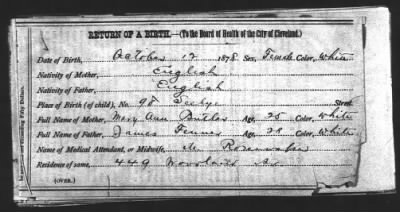 RETURN OF A BIRTH.—(To the Board of Health of the City of Cleveland.)
Date of Birth, October 12 1878 Sex, Female Color, White
Nativity of Mother, English
Nativity of Father, English
Place of Birth (of child), No. 98 Street.
Full Name of Mother, Mary Ann Age, 25 Color, White
Full Name of Father, James Age, 28 Color, White
Name of Medical Attendant, or Midwife,
Residence of same, 449 Av.
(OVER.)